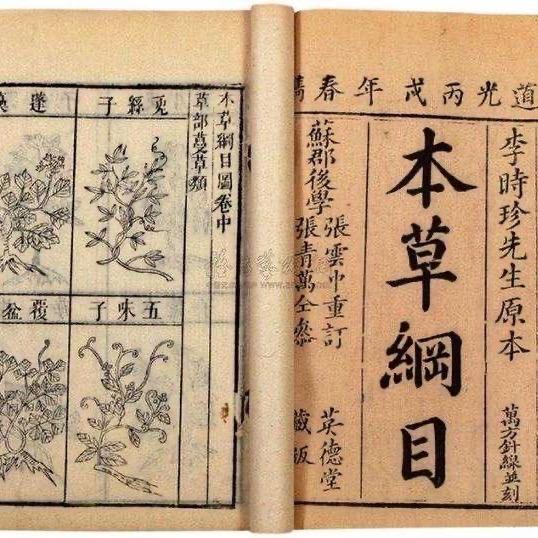 道光丙戌年春
李時珍先生原本
萬方針線並刻
本草綱目
蘇郡後學
張雲中重訂
張青萬仝參
英德堂
藏板
本草綱目圖卷中
草部蔓草類
兎絲子
五味子
蓬
覆盆